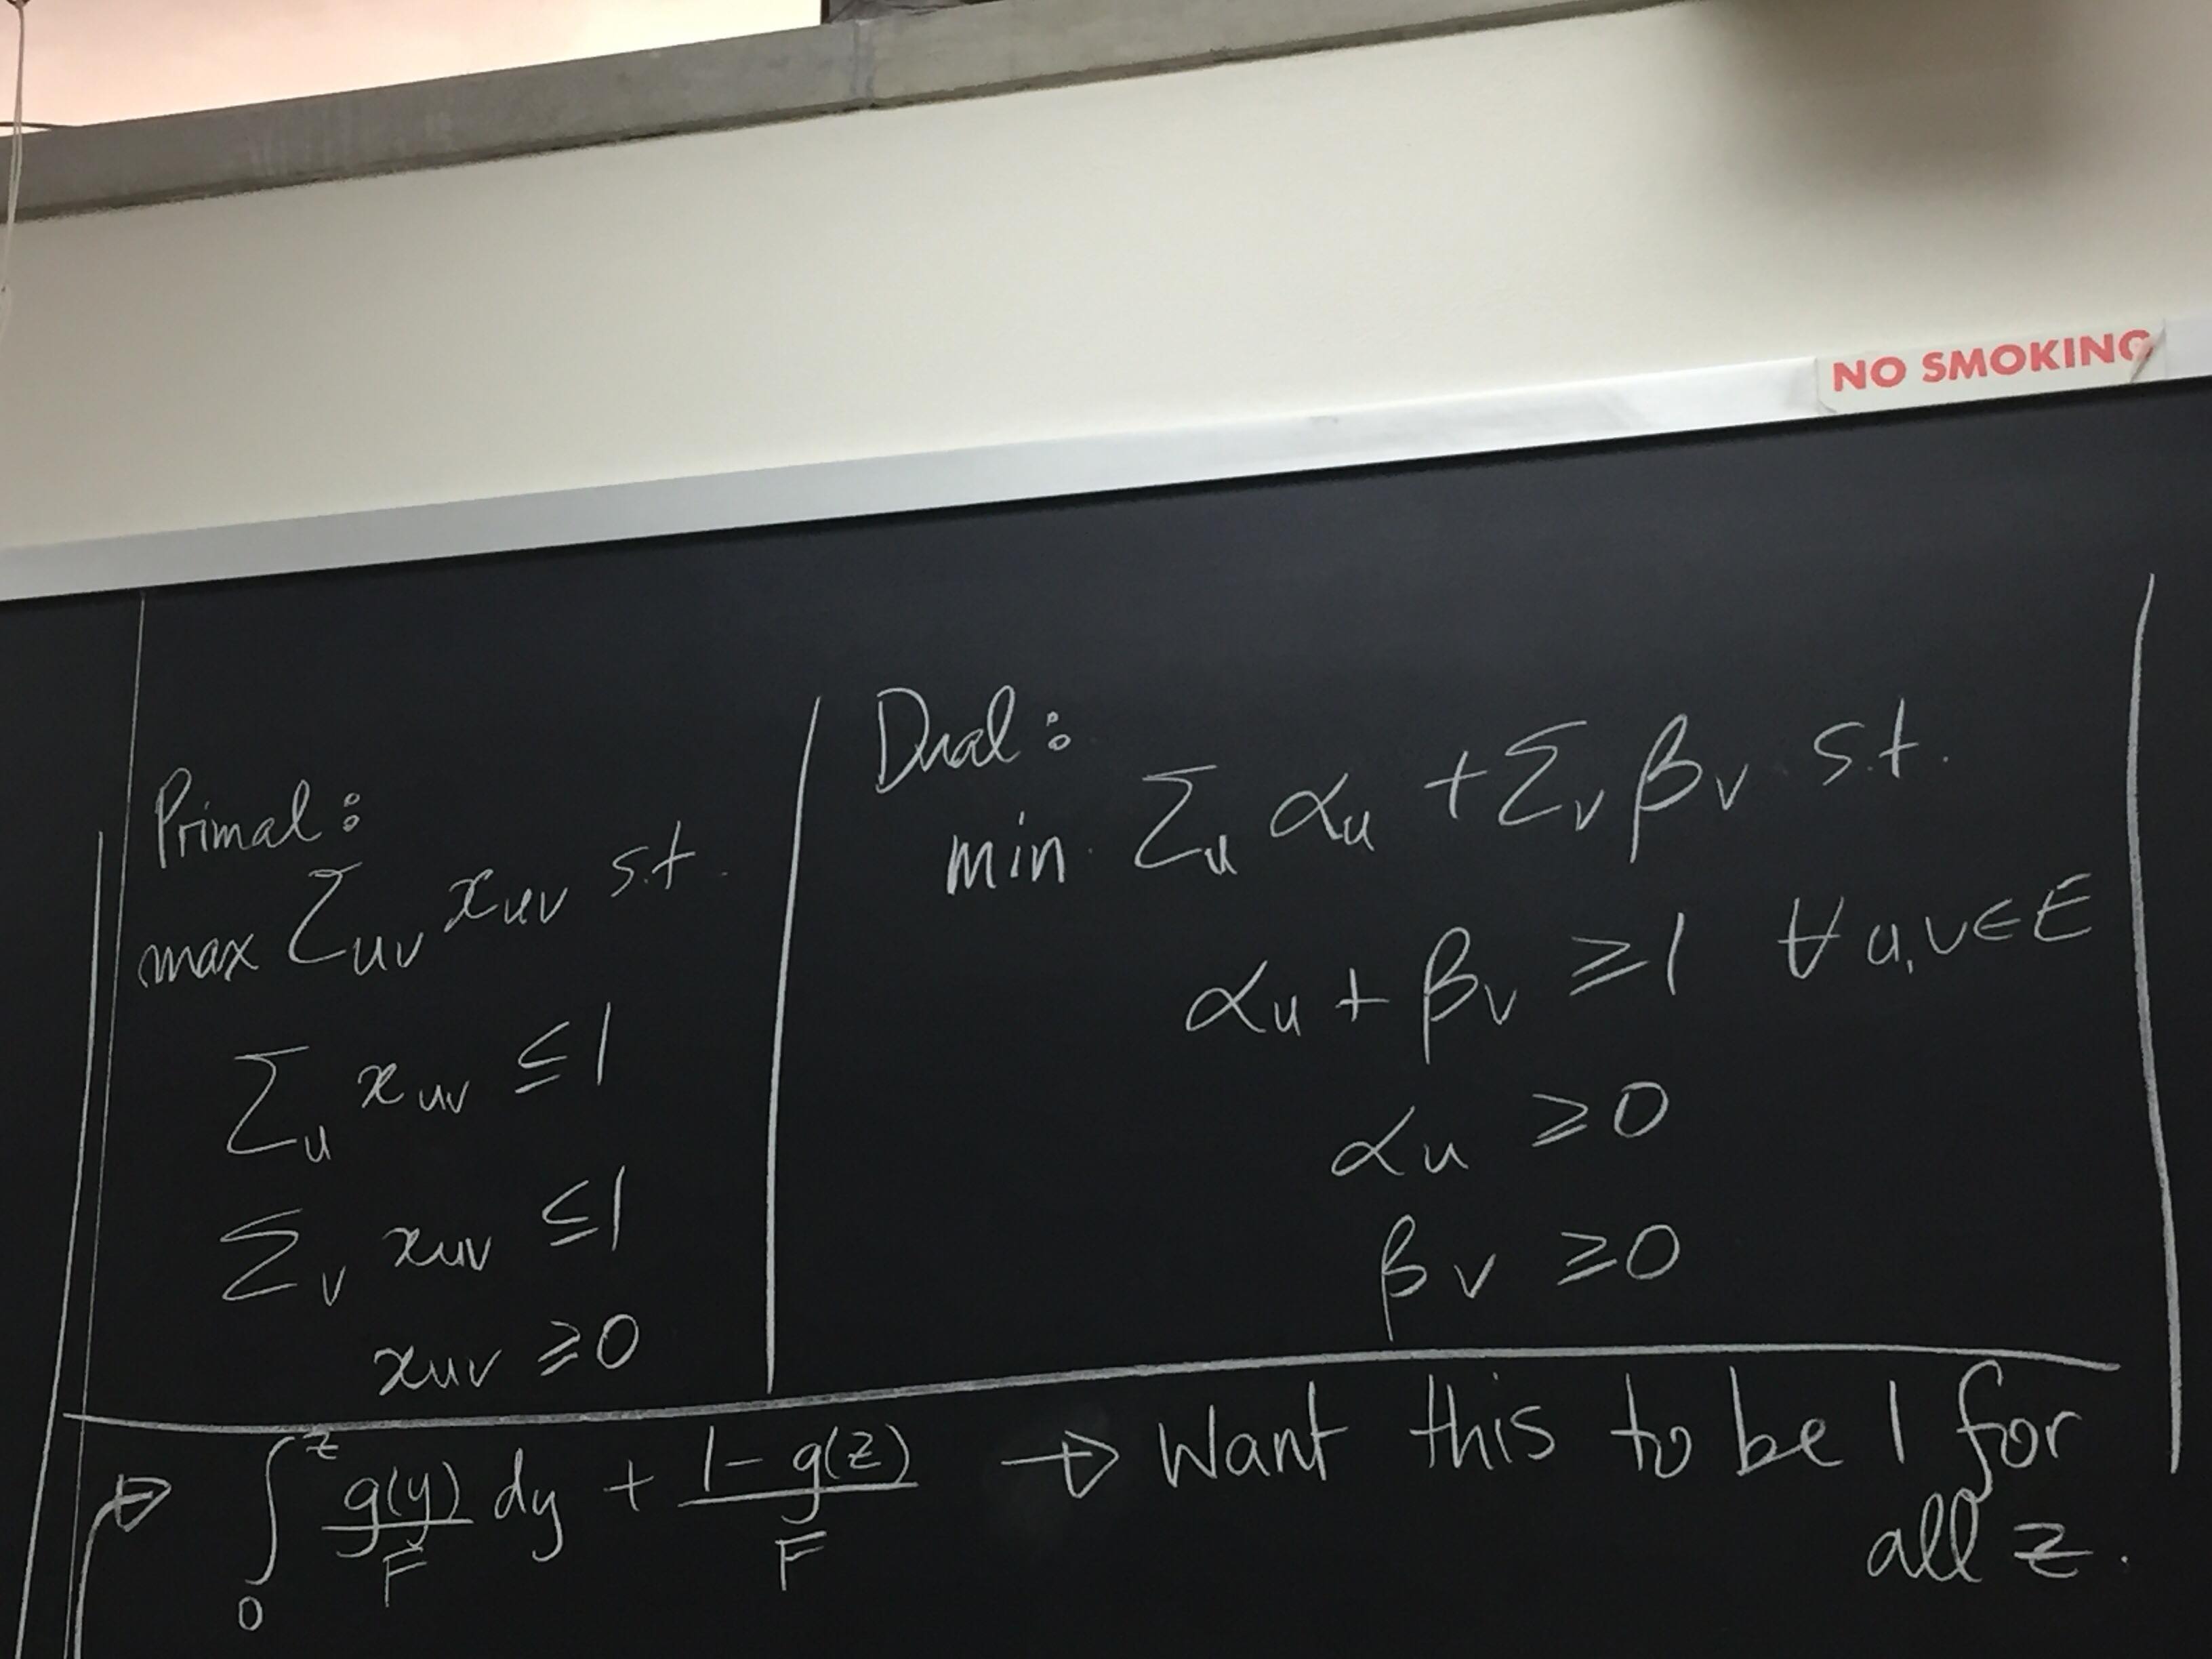 NO SMOKING
Primal:
max Σ_uv x_uv s.t.
Σ_u x_uv ≤ 1
Σ_v x_uv ≤ 1
x_uv ≥ 0
Dual:
min. Σ_u α_u + Σ_v β_v s.t.
α_u + β_v ≥ 1 ∀ u,v ∈ E
α_u ≥ 0
β_v ≥ 0
∫_0^z g(y)/F dy + (1 - g(z))/F → Want this to be 1 for
all z.